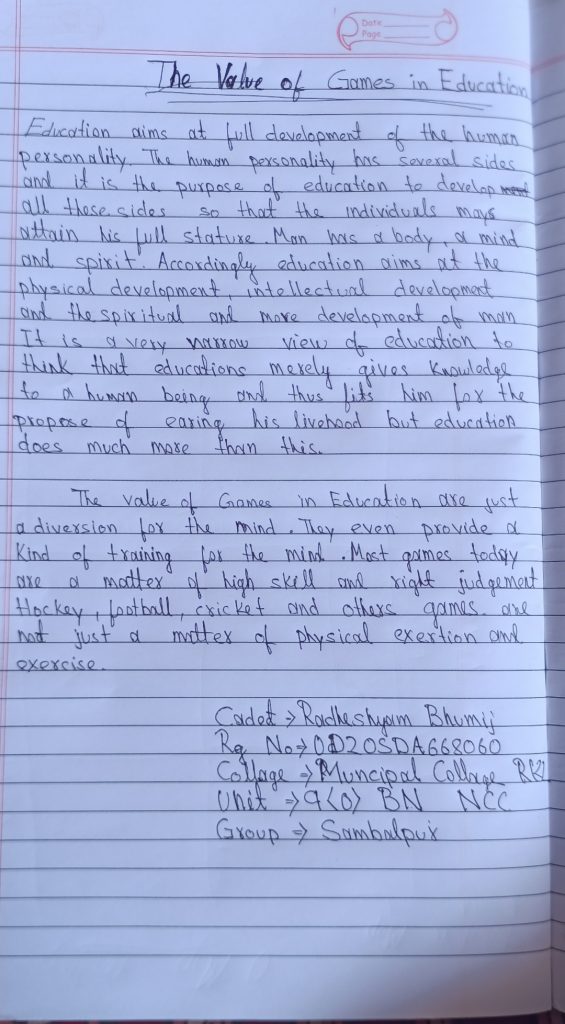 Date
Page
The Value of Games in Education
Education aims at full development of the human
personality. The human personality has several sides
and it is the purpose of education to develop
all these sides so that the individuals mays
attain his full stature. Man has a body, a mind
and spirit. Accordingly education aims at the
physical development, intellectual development
and the spiritual and more development of man
It is a very narrow view of education to
think that educations merely gives Knowledge
to a human being and thus fits him for the
propose of earing his livehood but education
does much more than this.
The value of Games in Education are just
a diversion for the mind. They even provide a
Kind of training for the mind. Most games today
are a matter of high skill and right judgement
Hockey, football, cricket and others games. are
not just a matter of physical exertion and
exercise.
Cadet → Radheshyam Bhumij
Rg No → OD20SDA668060
Collage → Muncipal Collage RKL
Unit → 9(O) BN NCC
Group → Sambalpur